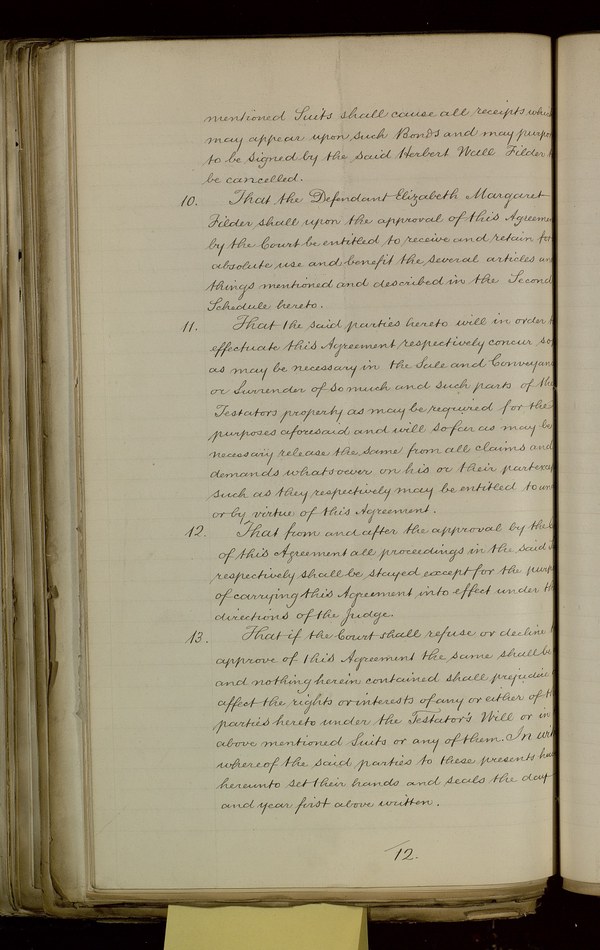 mentioned Suits shall cause all receipts
may appear upon such Bonds and may
to be signed by the said Herbert Wall Filder
be cancelled.
10. That the Defendant Elizabeth Margaret
Filder shall upon the approval of this Agreeme
by the Court be entitled to receive and retain for
absolute use and benefit the several articles an
things mentioned and described in the Second
Schedule hereto.
11. That the said parties hereto will in order t
effectuate this Agreement respectively concur so
as may be necessary in the Sale and Conveyan
or Surrender of so much and such parts of the
Testators property as may be required for the
purposes aforesaid and will so far as may be
necessary release the same from all claims and
demands whatsoever on his or their part
such as they respectively may be entitled to un
or by virtue of this Agreement.
12. That from and after the approval by the C
of this Agreement all proceedings in the said S
respectively shall be stayed except for the purp
of carrying this Agreement into effect under th
directions of the Judge.
13. That if the Court shall refuse or decline t
approve of this Agreement the same shall be
and nothing herein contained shall prejudice
affect the rights or interests of any or either of th
parties hereto under the Testator's Will or in
above mentioned Suits or any of them. In wit
whereof the said parties to these presents ha
hereunto set their hands and seals the day
and year first above written.
12.